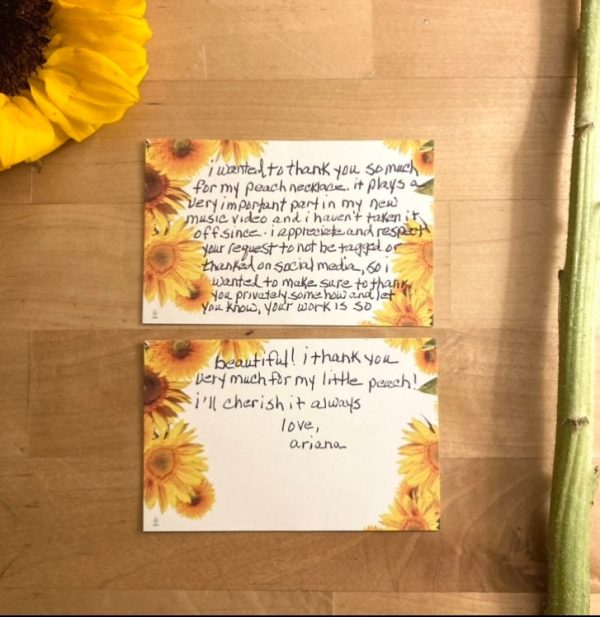 i wanted to thank you so much
for my peach necklace. it plays a
very important part in my new
music video and i haven't taken it
off since. i appreciate and respect
your request to not be tagged or
thanked on social media, so i
wanted to make sure to thank
you privately somehow and let
you know, your work is so
beautiful! i thank you
very much for my little peach!
i'll cherish it always
love,
ariana